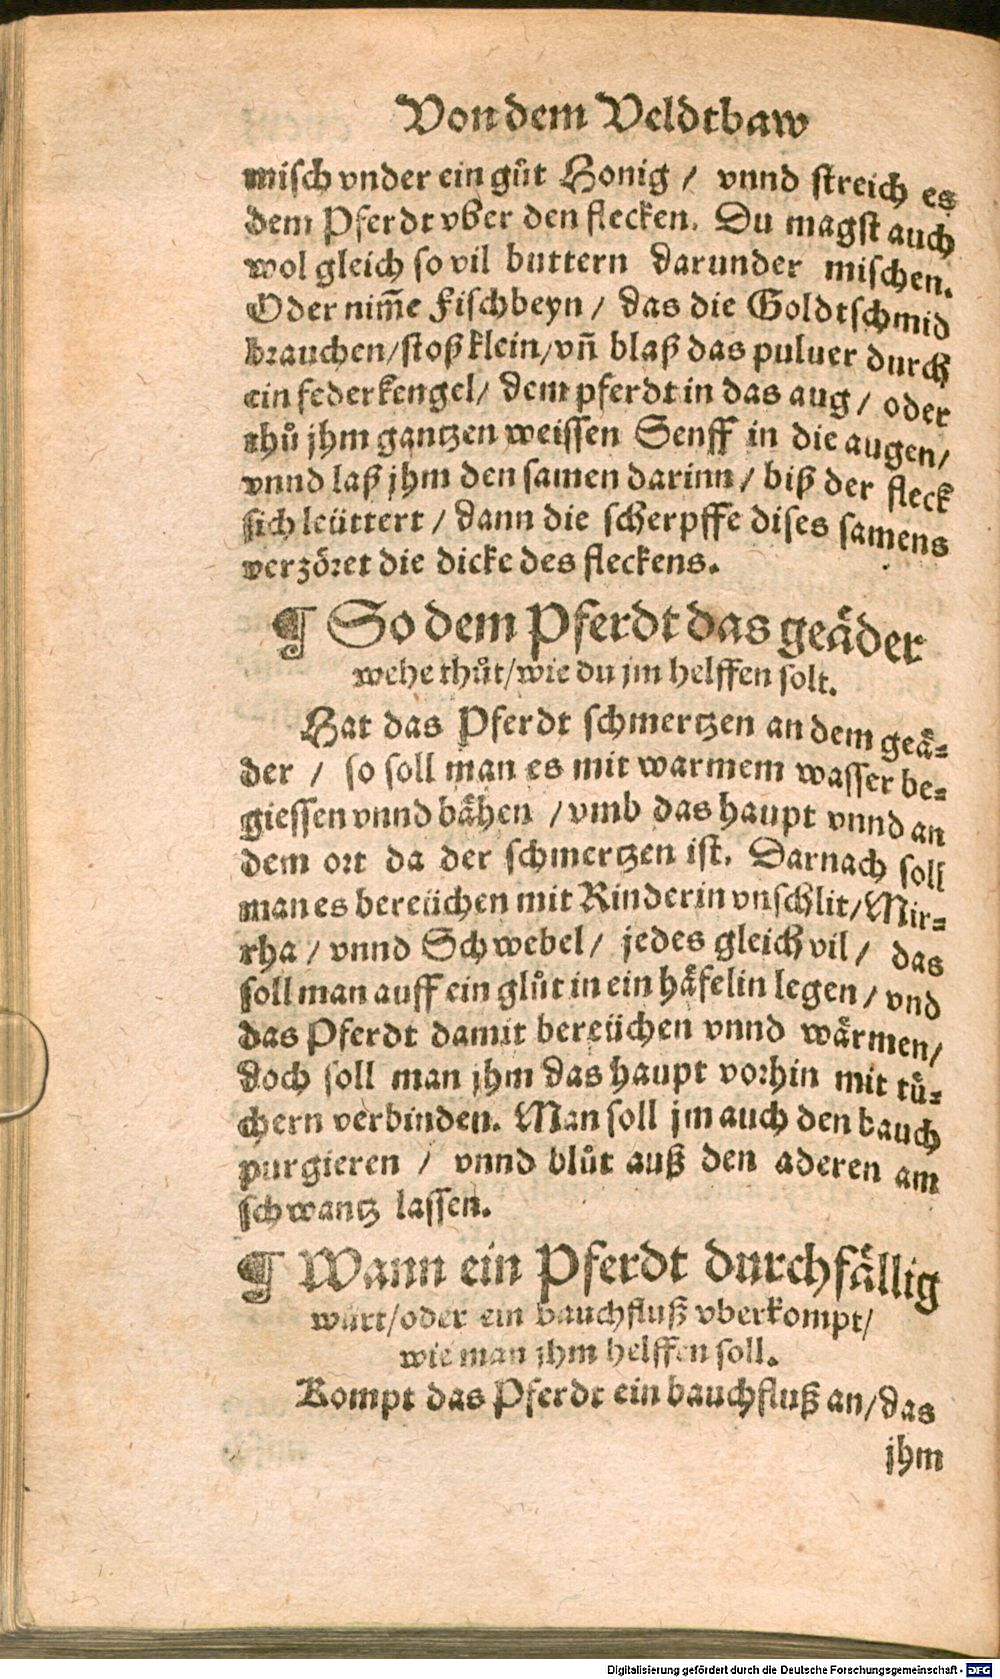 Von dem Veldtbaw
misch vnder ein gůt Honig / vnnd streich es
dem Pferdt vber den flecken. Du magst auch
wol gleich so vil buttern darunder mischen.
Oder nim̃e Fischbeyn / das die Goldtschmid
brauchen/stoß klein/vñ blaß das puluer durch
ein federkengel/ dem pferdt in das aug / oder
thů jhm gantzen weissen Senff in die augen/
vnnd laß jhm den samen darinn / biß der fleck
sich leüttert / dann die scherpffe dises samens
verzöret die dicke des fleckens.
¶ So dem Pferdt das geäder
wehe thůt/wie du jm helffen solt.
Hat das Pferdt schmertzen an dem geä-
der / so soll man es mit warmem wasser be-
giessen vnnd bähen / vmb das haupt vnnd an
dem ort da der schmertzen ist. Darnach soll
man es bereüchen mit Rinderin vnschlit/Mir-
rha / vnnd Schwebel / jedes gleich vil / das
soll man auff ein glůt in ein häfelin legen / vnd
das Pferdt damit bereüchen vnnd wärmen/
doch soll man jhm das haupt vorhin mit tü-
chern verbinden. Man soll jm auch den bauch
purgieren / vnnd blůt auß den aderen am
schwantz lassen.
¶ Wann ein Pferdt durchfällig
würt/oder ein bauchfluß vberkompt/
wie man jhm helffen soll.
Kompt das Pferdt ein bauchfluß an/das
jhm
Digitalisierung gefördert durch die Deutsche Forschungsgemeinschaft - DFG